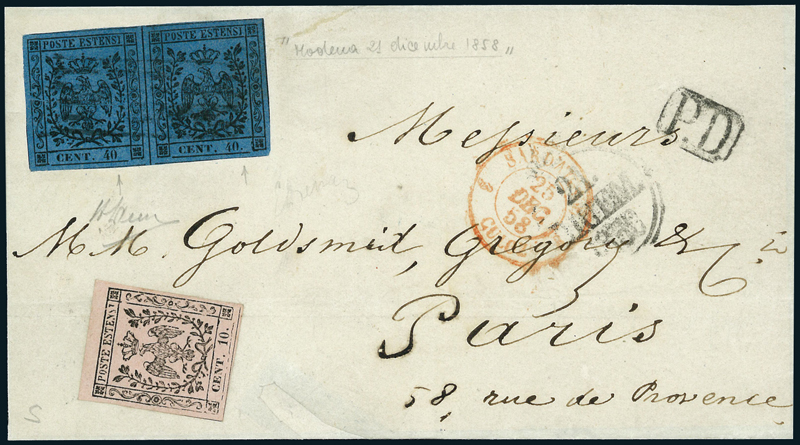 POSTE ESTENSI POSTE ESTENSI
CENT. 40. CENT. 40.
"Modena 21 dicembre 1858"
P.D
Messieurs
SARD.
25
DEC
58
CULOZ
M.M. Goldsmid, Gregory & Cie
Paris
58, rue de Provence
POSTE ESTENSI
CENT. 10.
S